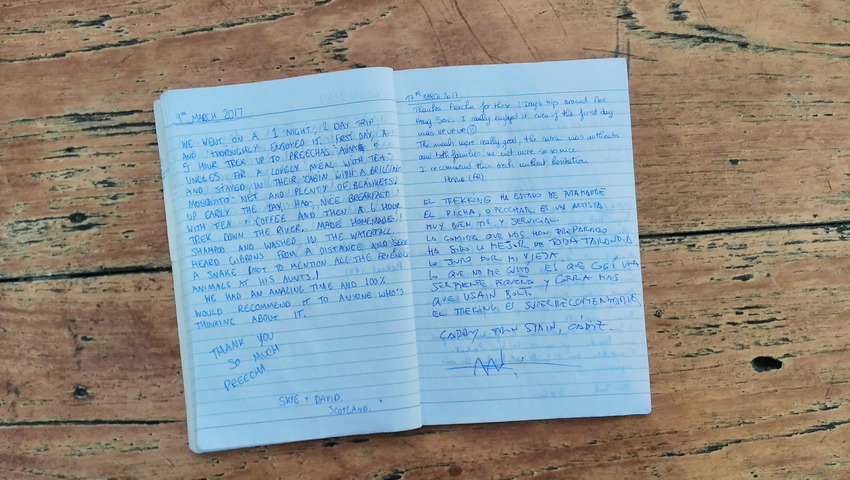 9th MARCH 2017
WE WENT ON A 1 NIGHT, 2 DAY TRIP
AND THOROUGHLY ENJOYED IT. FIRST DAY, A
5 HOUR TREK UP TO PREECHAS AUNT &
UNCLES FOR A LOVELY MEAL WITH TEA
AND STAYED IN THEIR CABIN WITH A BRILLIANT
MOSQUITO NET AND PLENTY OF BLANKETS.
UP EARLY THE DAY HAD NICE BREAKFAST
WITH TEA & COFFEE AND THEN A 6 HOUR
TREK DOWN THE RIVER. MADE HOMEMADE
SHAMPOO AND WASHED IN THE WATERFALL
HEARD GIBBONS FROM A DISTANCE AND SEEN
A SNAKE (NOT TO MENTION ALL THE FRIENDLY
ANIMALS AT HIS AUNTS!
WE HAD AN AMAZING TIME AND 100%
WOULD RECOMMEND IT TO ANYONE WHO'S
THINKING ABOUT IT.
THANK YOU
SO MUCH
PREECHA
SKYE & DAVID
SCOTLAND.
17th MARCH 2017
Thanks Preecha for these 2 days trip around
Hong Son. I really enjoyed it even if the first day
was up up up ☺
The meals were really good, the cabin was authentic
and both families we met were so nice.
I recommend this trek without hesitation
(FR)
EL TREKKING HA ESTADO DE PUTAMADRE
EL PICHA, O PECCHAR ES UN ARTISTA
MUY BIEN TIO Y SERVICIAL.
LA COMIDA QUE NOS HAN PREPARADO
HA SIDO LA MEJOR DE TODA TAILANDIA
LO JURO POR MI VIEJA.
LO QUE NO ME GUSTO ES QUE COGÍ UNA
SERPIENTE PEQUEÑA Y CORRIA MAS
QUE USAIN BOLT.
EL TREKING ES SUPERRECOMENDABLE
SPAIN, CÁDIZ.